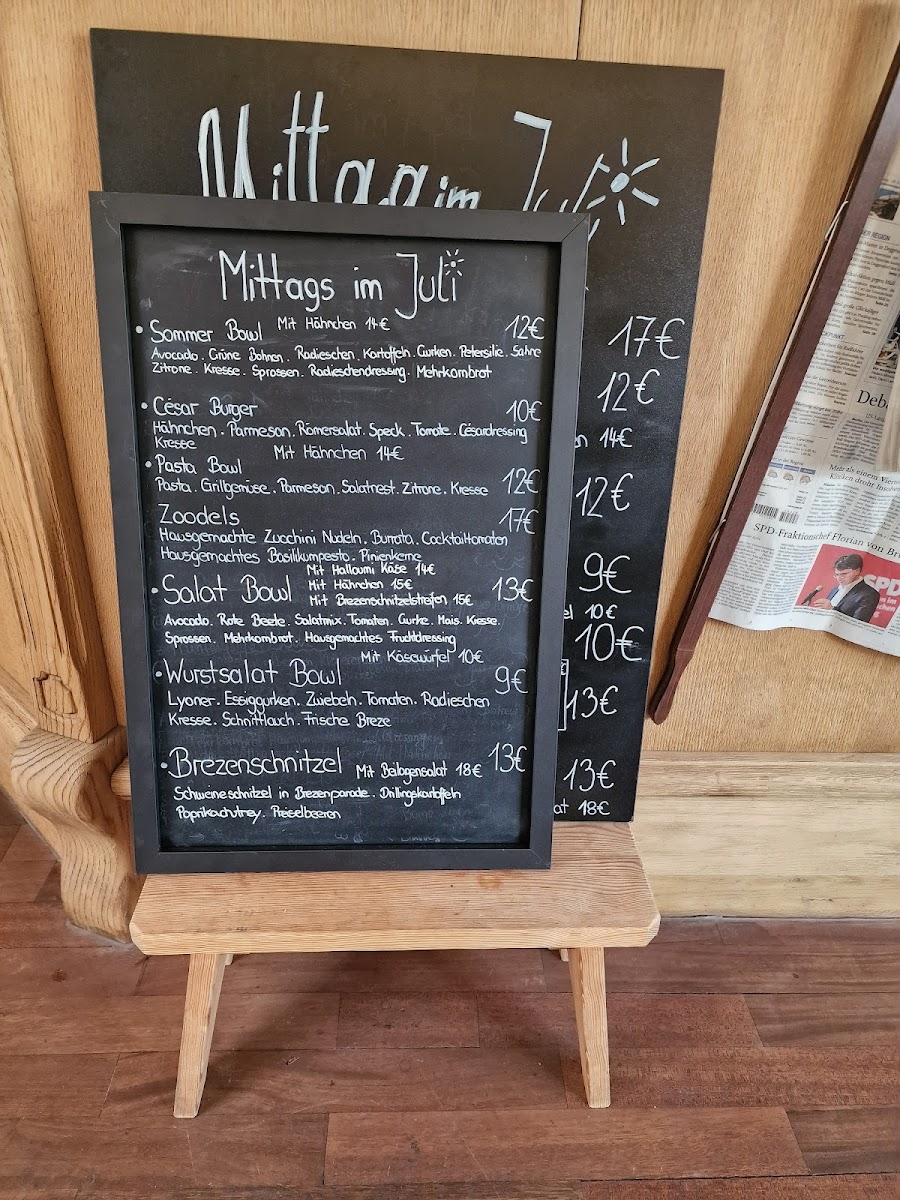 Mittag im Juli
Mittags im Juli
Sommer Bowl Mit Hähnchen 14€ 12€
Avocado. Grüne Bohnen. Radieschen. Kartoffeln. Gurken. Petersilie. Sahne
Zitrone. Kresse. Sprossen. Radieschendressing. Mehrkornbrot
César Burger 10€
Hähnchen. Parmesan. Römersalat. Speck. Tomate. Césardressing
Kresse
Mit Hähnchen 14€
Pasta Bowl
Pasta. Grillgemüse. Parmesan. Salatnest. Zitrone. Kresse 12€
Zoodels 17€
Hausgemachte Zucchini Nudeln. Burrata. Cocktailtomaten
Hausgemachtes Basilikumpesto. Pinienkerne
Mit Halloumi Käse 14€
Salat Bowl Mit Hähnchen 15€ 13€
Mit Brezenschnitzelstreifen 15€
Avocado. Rote Beete. Salatmix. Tomaten. Gurke. Mais. Kresse.
Sprossen. Mehrkornbrot. Hausgemachtes Fruchtdressing
Mit Käsewürfel 10€
Wurstsalat Bowl 9€
Lyoner. Essiggurken. Zwiebeln. Tomaten. Radieschen
Kresse. Schnittlauch. Frische Breze
Brezenschnitzel Mit Beilagensalat 18€ 13€
Schweineschnitzel in Brezenpanade. Drillingskartoffeln
Paprikachutney. Preiselbeeren
17€
12€
14€
12€
9€
10€
10€
13€
13€
18€
DER REGION
Deba
Mehr als einem Viert
Kliniken droht Insolv
SPD-Fraktionschef Florian von Br
SPD